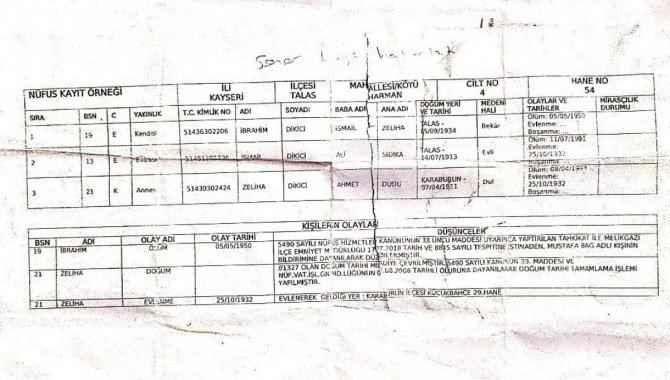 NÜFUS KAYIT ÖRNEĞİ İLİ KAYSERİ İLÇESİ TALAS MAHALLESİ/KÖYÜ HARMAN CİLT NO 4 HANE NO 54
SIRA BSN C YAKINLIK T.C. KİMLİK NO ADI SOYADI BABA ADI ANA ADI DOĞUM YERİ VE TARİHİ MEDENİ HALİ OLAYLAR VE TARİHLER MİRASÇILIK DURUMU
1 19 E Kendisi 51436302206 İBRAHİM DİKİCİ İSMAİL ZELİHA TALAS - 05/09/1934 Bekâr Ölüm: 05/05/1950 Evlenme: ... Boşanma: ...
2 13 E Babası İSMAİL DİKİCİ ALİ SIDIKA TALAS - 14/07/1913 Evli Ölüm: 11/07/1991 Evlenme: 25/10/1932 Boşanma: ...
3 21 K Annesi 51430302424 ZELİHA DİKİCİ AHMET DUDU KARABURUN - 07/04/1911 Dul Evlenme: 25/10/1932 Boşanma: ...
KİŞİLERİN OLAYLARI
BSN ADI OLAY ADI OLAY TARİHİ DÜŞÜNCELER
19 İBRAHİM ÖLÜM 05/05/1950 5490 SAYILI NÜFUS HİZMETLERİ KANUNUNUN 33 ÜNCÜ MADDESİ UYARINCA YAPTIRILAN TAHKİKAT İLE MELİKGAZİ
İLÇE EMNİYET 2018 TARİH VE SAYILI TESPİTİNE İSTİNADEN, MUSTAFA BAĞ ADLI KİŞİNİN
BİLDİRİMİNE DAYANILARAK
21 ZELİHA DOĞUM //1327 OLAN DOĞUM TARİHİ ÇEVRİLMİŞTİR. 5490 SAYILI KANUNUN 39. MADDESİ VE
NÜF.VAT.İŞL.GN 2006 TARİHLİ OLURUNA DAYANILARAK DOĞUM TARİHİ TAMAMLAMA İŞLEMİ
YAPILMIŞTIR.
21 ZELİHA EVLENME 25/10/1932 EVLENEREK GELDİĞİ YER : İLÇESİ KÜÇÜKBAHÇE 29.HANE